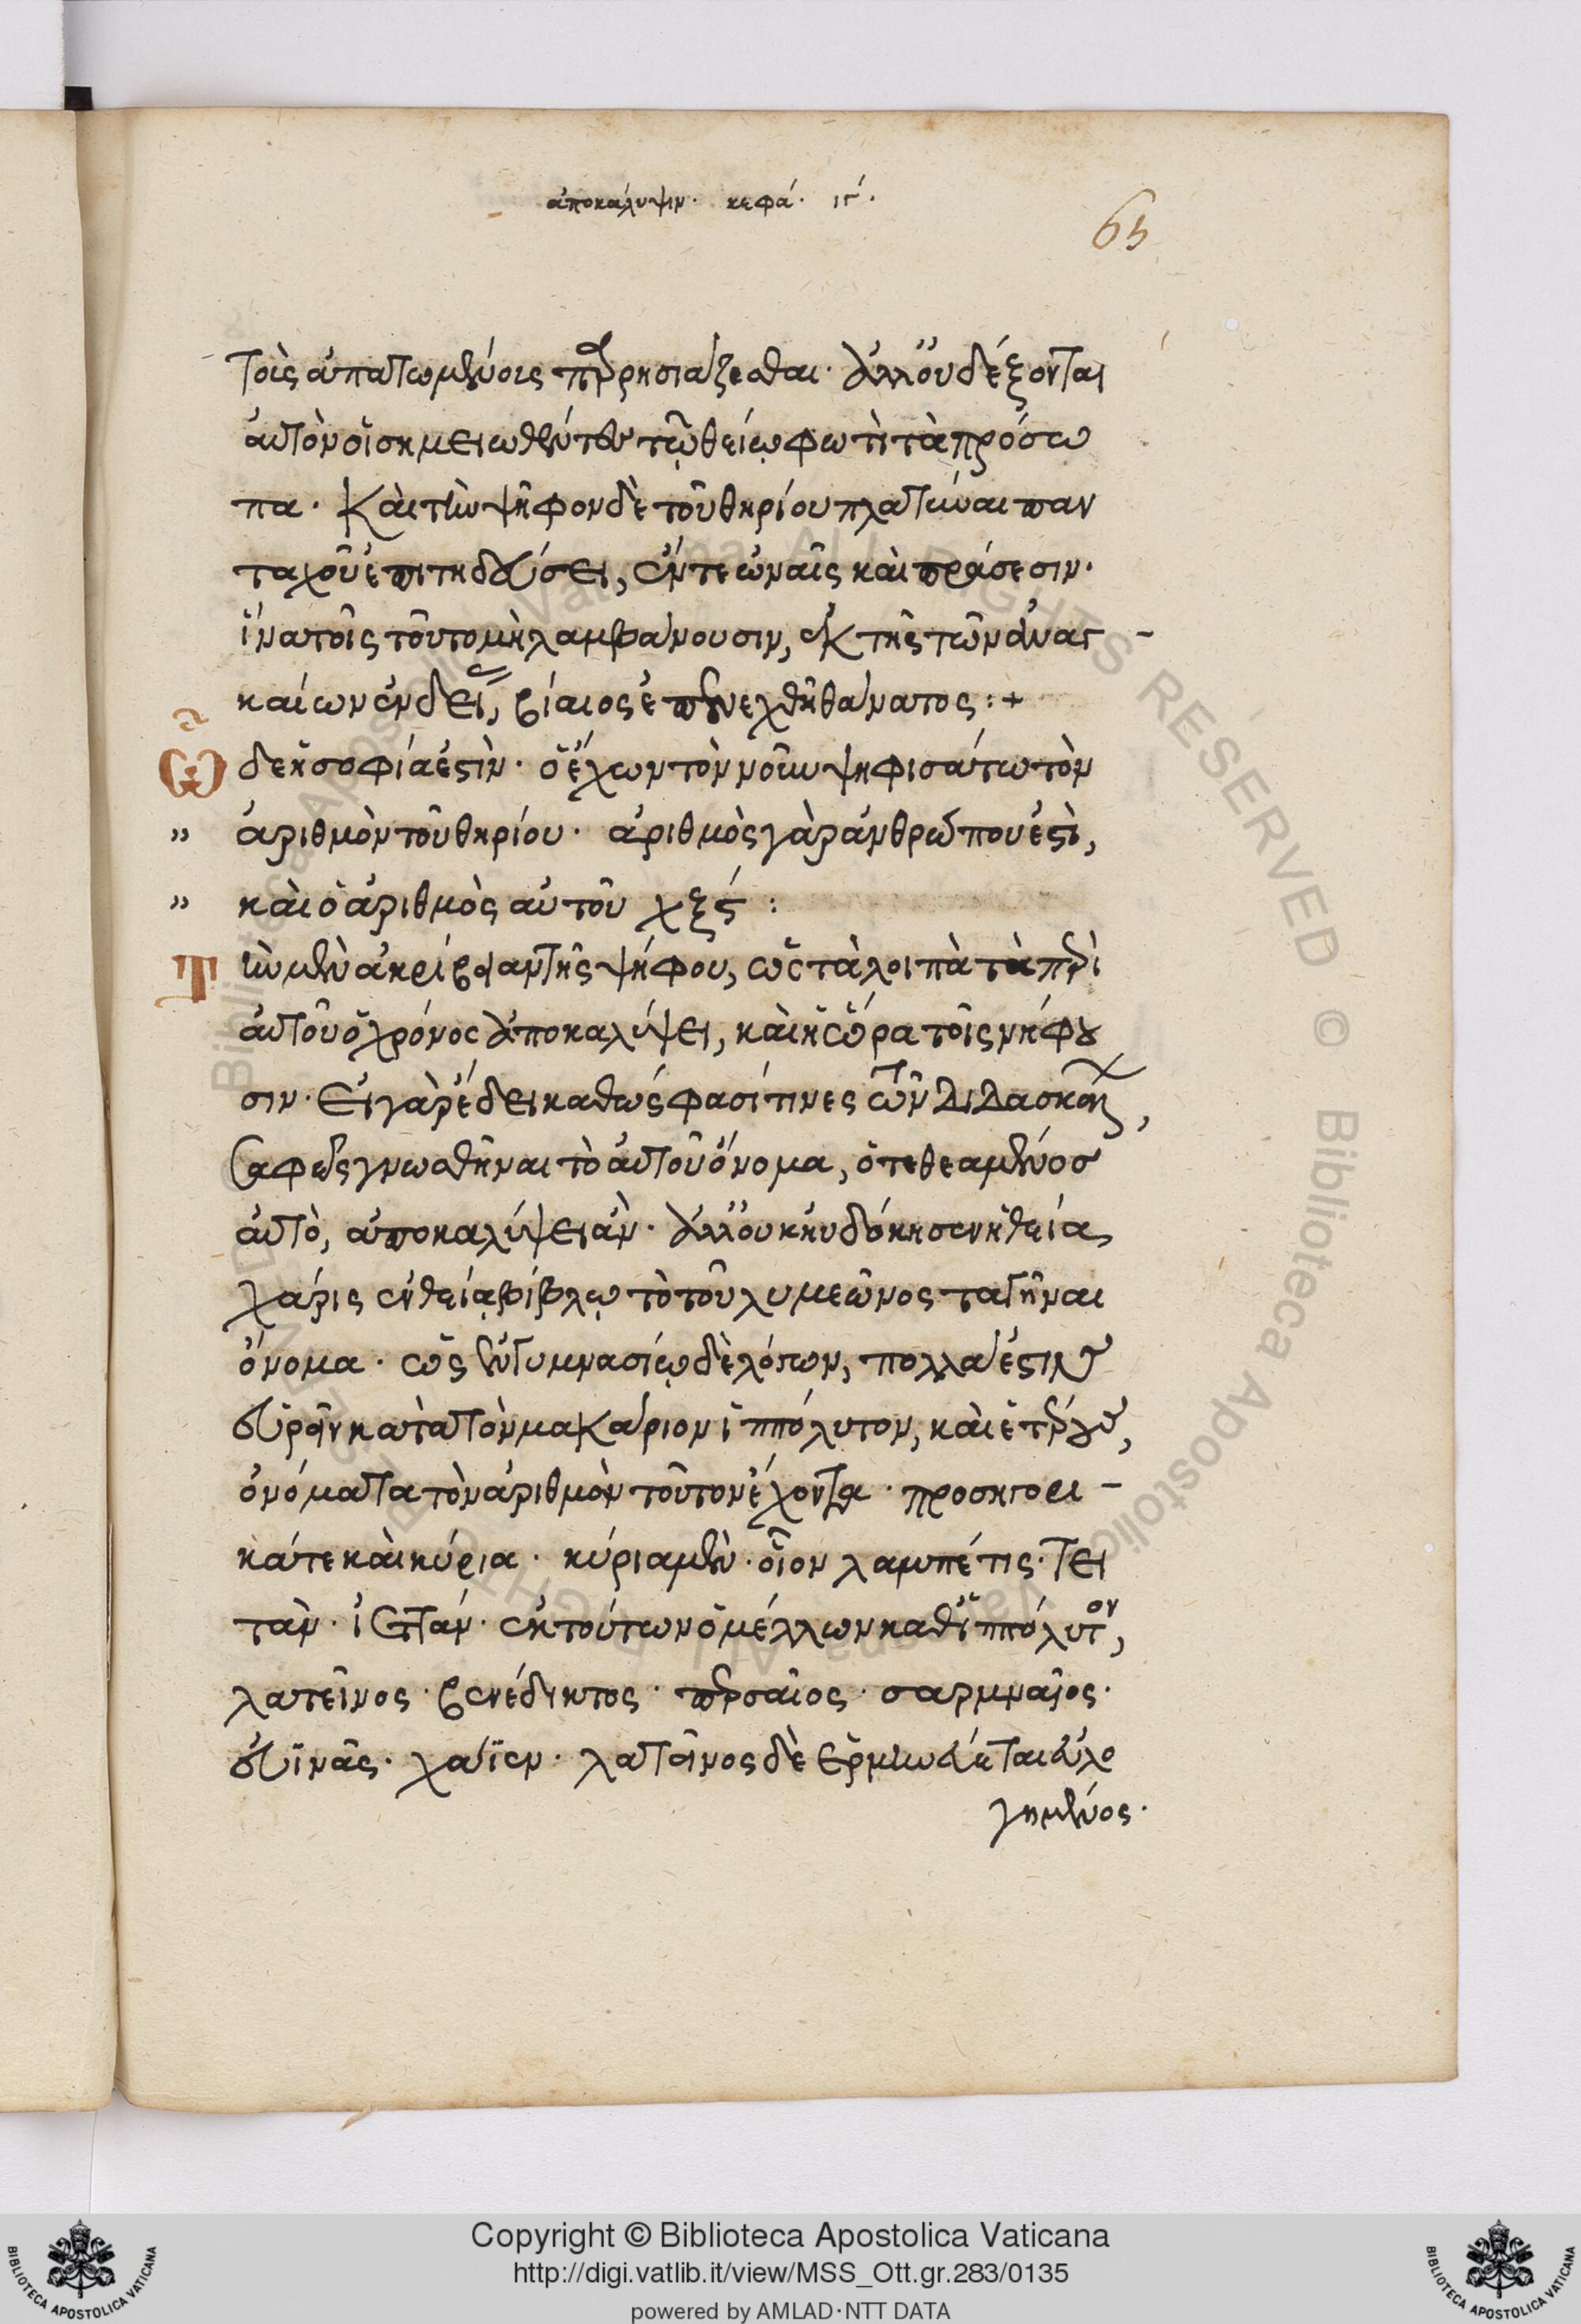 ἀποκάλυψιν· κεφά· ιγ΄.
65
τοῖς ἀπατωμένοις παρρησιάζεσθαι· ἀλλ' οὐ δέξονται
αὐτὸν οἱ σημειωθέντες τῷ θείῳ φωτὶ τὰ πρόσω
πα· καὶ τὴν ψῆφον δὲ τοῦ θηρίου πλατῦναι παν
ταχοῦ ἐπιτηδεύσει, ἔν τε ὠναῖς καὶ πράσεσιν·
ἵνα τοῖς τοῦτο μὴ λαμβάνουσιν, ἐκ τῆς τῶν ἀναγ-
καίων ἐνδείας, βίαιος ἐπενεχθῇ θάνατος:+
Ὧδε ἡ σοφία ἐστὶν· ὁ ἔχων τὸν νοῦν ψηφισάτω τὸν
" ἀριθμὸν τοῦ θηρίου· ἀριθμὸς γὰρ ἀνθρώπου ἐστὶ,
" καὶ ὁ ἀριθμὸς αὐτοῦ χξϛ΄:
Τὴν μὲν ἀκρίβειαν τῆς ψήφου, ὡς τὰ λοιπὰ τὰ περὶ
αὐτοῦ ὁ χρόνος ἀποκαλύψει, καὶ ἡ πεῖρα τοῖς νήφου
σιν· εἰ γὰρ ἔδει καθώς φασί τινες τῶν διδασκάλων,
σαφῶς γνωσθῆναι τὸ αὐτοῦ ὄνομα, ὁ τεθεαμένος
αὐτὸ, ἀποκαλύψει ἂν· ἀλλ' οὐκ ηὐδόκησεν ἡ θεία
χάρις ἐν θείᾳ βίβλῳ τὸ τοῦ λυμεῶνος ταγῆναι
ὄνομα· ὡς ἐν γυμνασίῳ δὲ λόγων, πολλά ἐστιν
εὑρεῖν κατὰ τὸν μακάριον ἱππόλυτον, καὶ ἑτέρους,
ὀνόματα τὸν ἀριθμὸν τοῦτον ἔχοντα· προσηγορι-
κά τε καὶ κύρια· κύρια μὲν· οἷον λαμπέτις· τει
τὰν· ἐκ τούτων ὁ μέλλων καθ' ἱππόλυτον,
λατεῖνος· βενέδικτος· περσαῖος· σαρμναῖος·
εὐϊνᾶς· χάϊεν· λατεῖνος δὲ ἑρμηνεύεται εὐλο
γημένος·
Copyright © Biblioteca Apostolica Vaticana
http://digi.vatlib.it/view/MSS_Ott.gr.283/0135
powered by AMLAD·NTT DATA
BIBLIOTECA APOSTOLICA VATICANA
BIBLIOTECA APOSTOLICA VATICANA